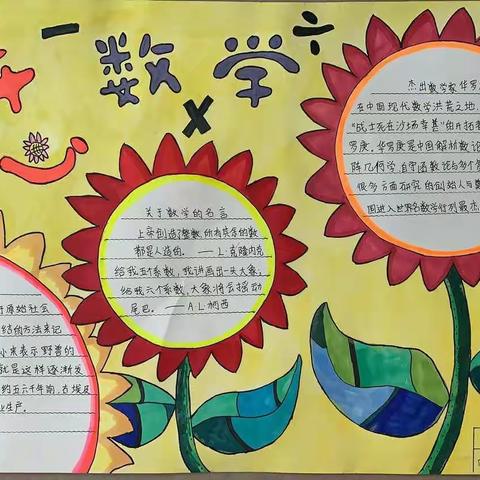 数学
杰出数学家华罗
在中国现代数学洪荒之地,
“战士死在沙场幸甚”的开拓
罗庚。华罗庚是中国解析数论
阵几何学、自守函数论与多个
很多方面研究的创始人与
国进入世界名数学行列最杰
关于数学的名言
上帝创造了整数,所有其余的数
都是人造的。——L·克隆内克
给我五个系数,我讲画出一头大象;
给我六个系数,大象将会摇动
尾巴。——A·L·柯西
原始社会
结的方法来记
小来表示野兽的
就是这样逐渐发
约五六千年前,古埃及
业生产。